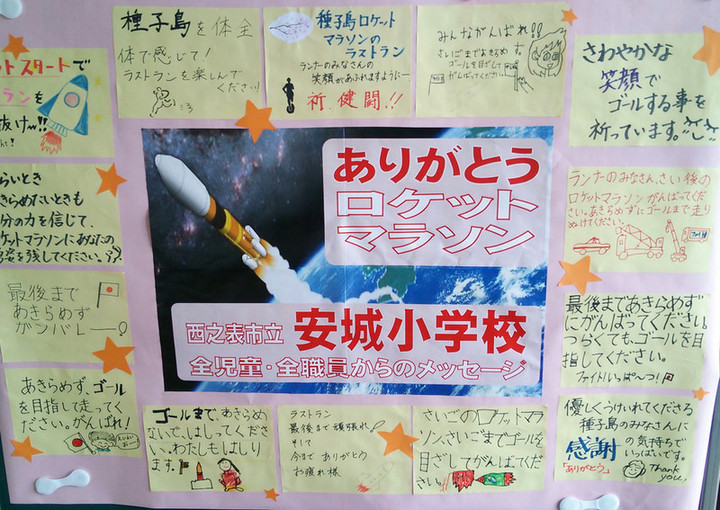 種子島を体全
体で感じて！
ラストランを楽しんで
ください♪
種子島ロケット
マラソンの
ラストラン
ランナーのみなさんの
笑顔があふれますように…
祈.健闘!!
みんながんばれ!!
さいごまであきらめず
ゴールを目ざして
がんばってください
さわやかな
笑顔で
ゴールする事を
祈っています。
ットスタートで
ランを
抜けへ!!
らいとき
きらめたいときも
分の力を信じて、
ケットマラソンにあなたの
を残してください。
最後まで
あきらめず
ガンバレー
あきらめず、ゴール
を目指して走ってく
ださい。がんばれ!
ありがとう
ロケット
マラソン
西之表市立 安城小学校
全児童・全職員からのメッセージ
ランナーのみなさん、さい後の
ロケットマラソンがんばってくだ
さい。あきらめずにゴールまで走り
ぬけてください。
最後まであきらめず
にがんばってください。
つらくても、ゴールを目
指してください。
ファイトいっぱ〜つ!
ゴールまで、あきらめ
ないで、はしってくださ
い。わたしもはしりま
す。
ラストラン
最後まで頑張れ
そして
今まで ありがとう
お疲れ様
さいごのロケットマラ
ソン、さいごまでゴールを
目ざしてがんばってくだ
さい。
優しくうけいれてくださる
種子島のみなさんに
感謝の気持ちで
いっぱいです。
「ありがとう」
Thank
you..